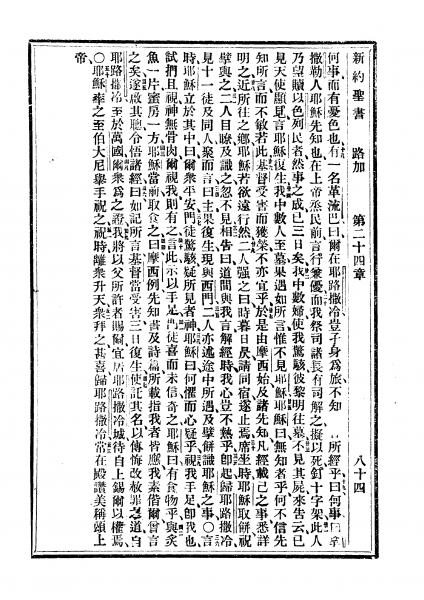 新約聖書　路加　第二十四章　八十四
何事而有憂色也有一名革流巴曰爾在耶路撒冷豈子身為旅不知所經乎曰何事曰拿
撒勒人耶穌先知也在上帝丞民前言行兼優而我祭司諸長有司解之擬以死釘十字架此人
乃望贖以色列民者然事之成已三日矣我中數婦使我驚駭彼黎明往墓不見其屍來告云已
見天使顯見言耶穌復生我中數人至墓果遇如所言惟不見耶穌耶穌曰無知者乎何不信先
知所言而不敏若此基督受害而獲榮不亦宜乎於是由摩西始及諸先知凡經載己之事悉詳
明之近所往之鄉耶穌若欲遠行然二人強之曰時暮日昃請同宿遂止焉席坐時耶穌取餅祝
擘與之二人目瞭及識之忽不見相告曰道間與我言解經時我心豈不熱乎即起歸耶路撒冷
見十一徒及同人聚而言曰主果復生現與西門二人亦述途中所遇及擘餅識耶穌之事〇言
時耶穌立於其中曰爾衆平安門徒驚駭疑所見者神耶穌曰何懼而心疑乎視我手足即我也
試捫且視神無骨肉爾視我則有之言此示以手足門徒喜而未信奇之耶穌曰有食物乎與炙
魚一片蜜房一方耶穌當前取食之曰摩西例先知書及詩篇所載指我者皆應我素偕爾曾言
之矣遂啟其聰令悟諸經曰如記所言基督當受害三日復生使託其名以傳悔改赦罪之道自
耶路撒冷至於萬國爾衆為之證我將以父所許者賜爾宜居耶路撒冷城待自上錫爾以權焉
〇耶穌率之至伯大尼舉手祝之祝時離衆升天衆拜之甚喜歸耶路撒冷常在殿讚美稱頌上
帝